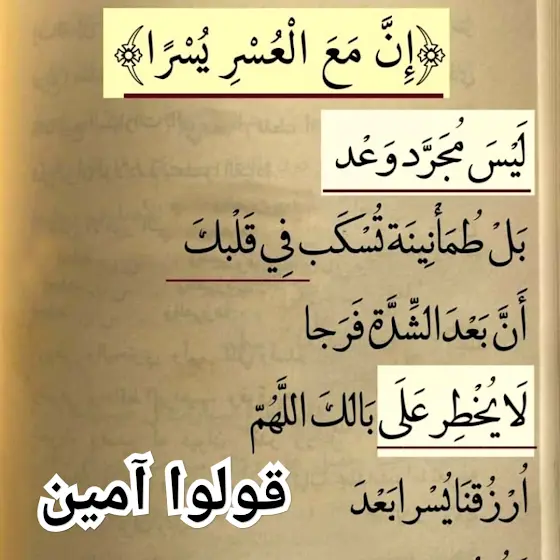 ﴿إِنَّ مَعَ الْعُسْرِ يُسْرًا﴾
لَيْسَ مُجَرَّد وَعْد
بَلْ طُمَأْنِينَة تُسْكَب فِي قَلْبكَ
أَنَّ بَعْدَ الشِّدَّة فَرَجا
لَا يُخْطِر عَلَى بَالكَ اللَّهُمّ
اُرْزُقنَا يُسْرا بَعْدَ
قولوا آمين